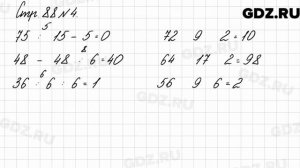 GDZ.RU
Стр. 88 № 4.
5
75 : 15 - 5 = 0 72 9 2 = 10
8
48 - 48 : 6 = 40 64 17 2 = 98
6
36 : 6 : 6 = 1 56 9 6 = 2
GDZ.RU